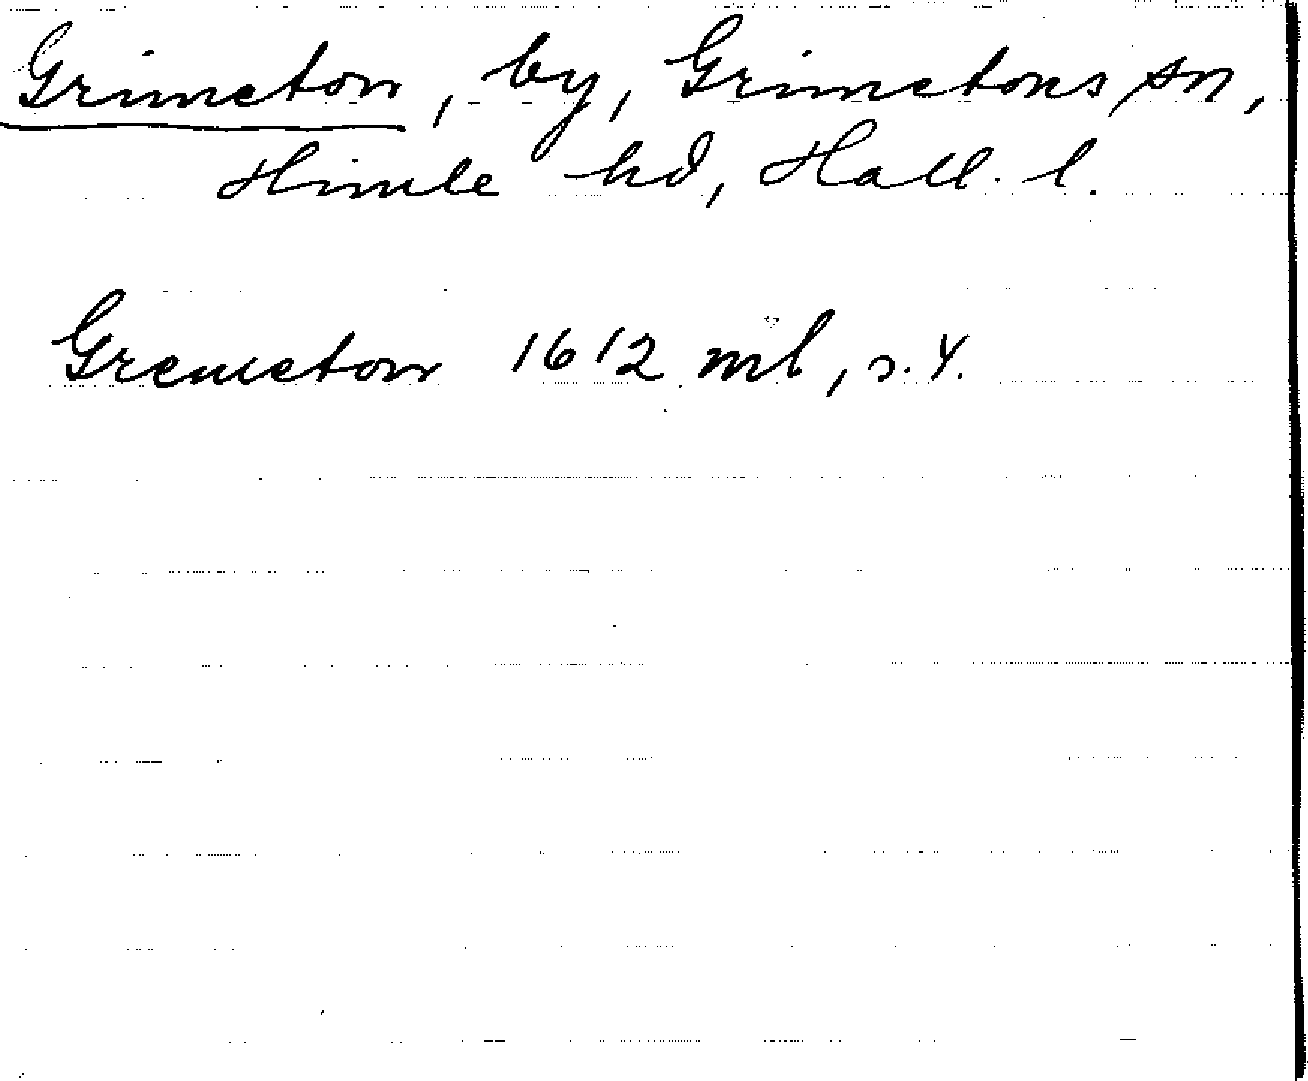 Grimeton, by, Grimetons sn,
Himle hd, Hall. l.
Gremeton 1612 ml, s. 4.